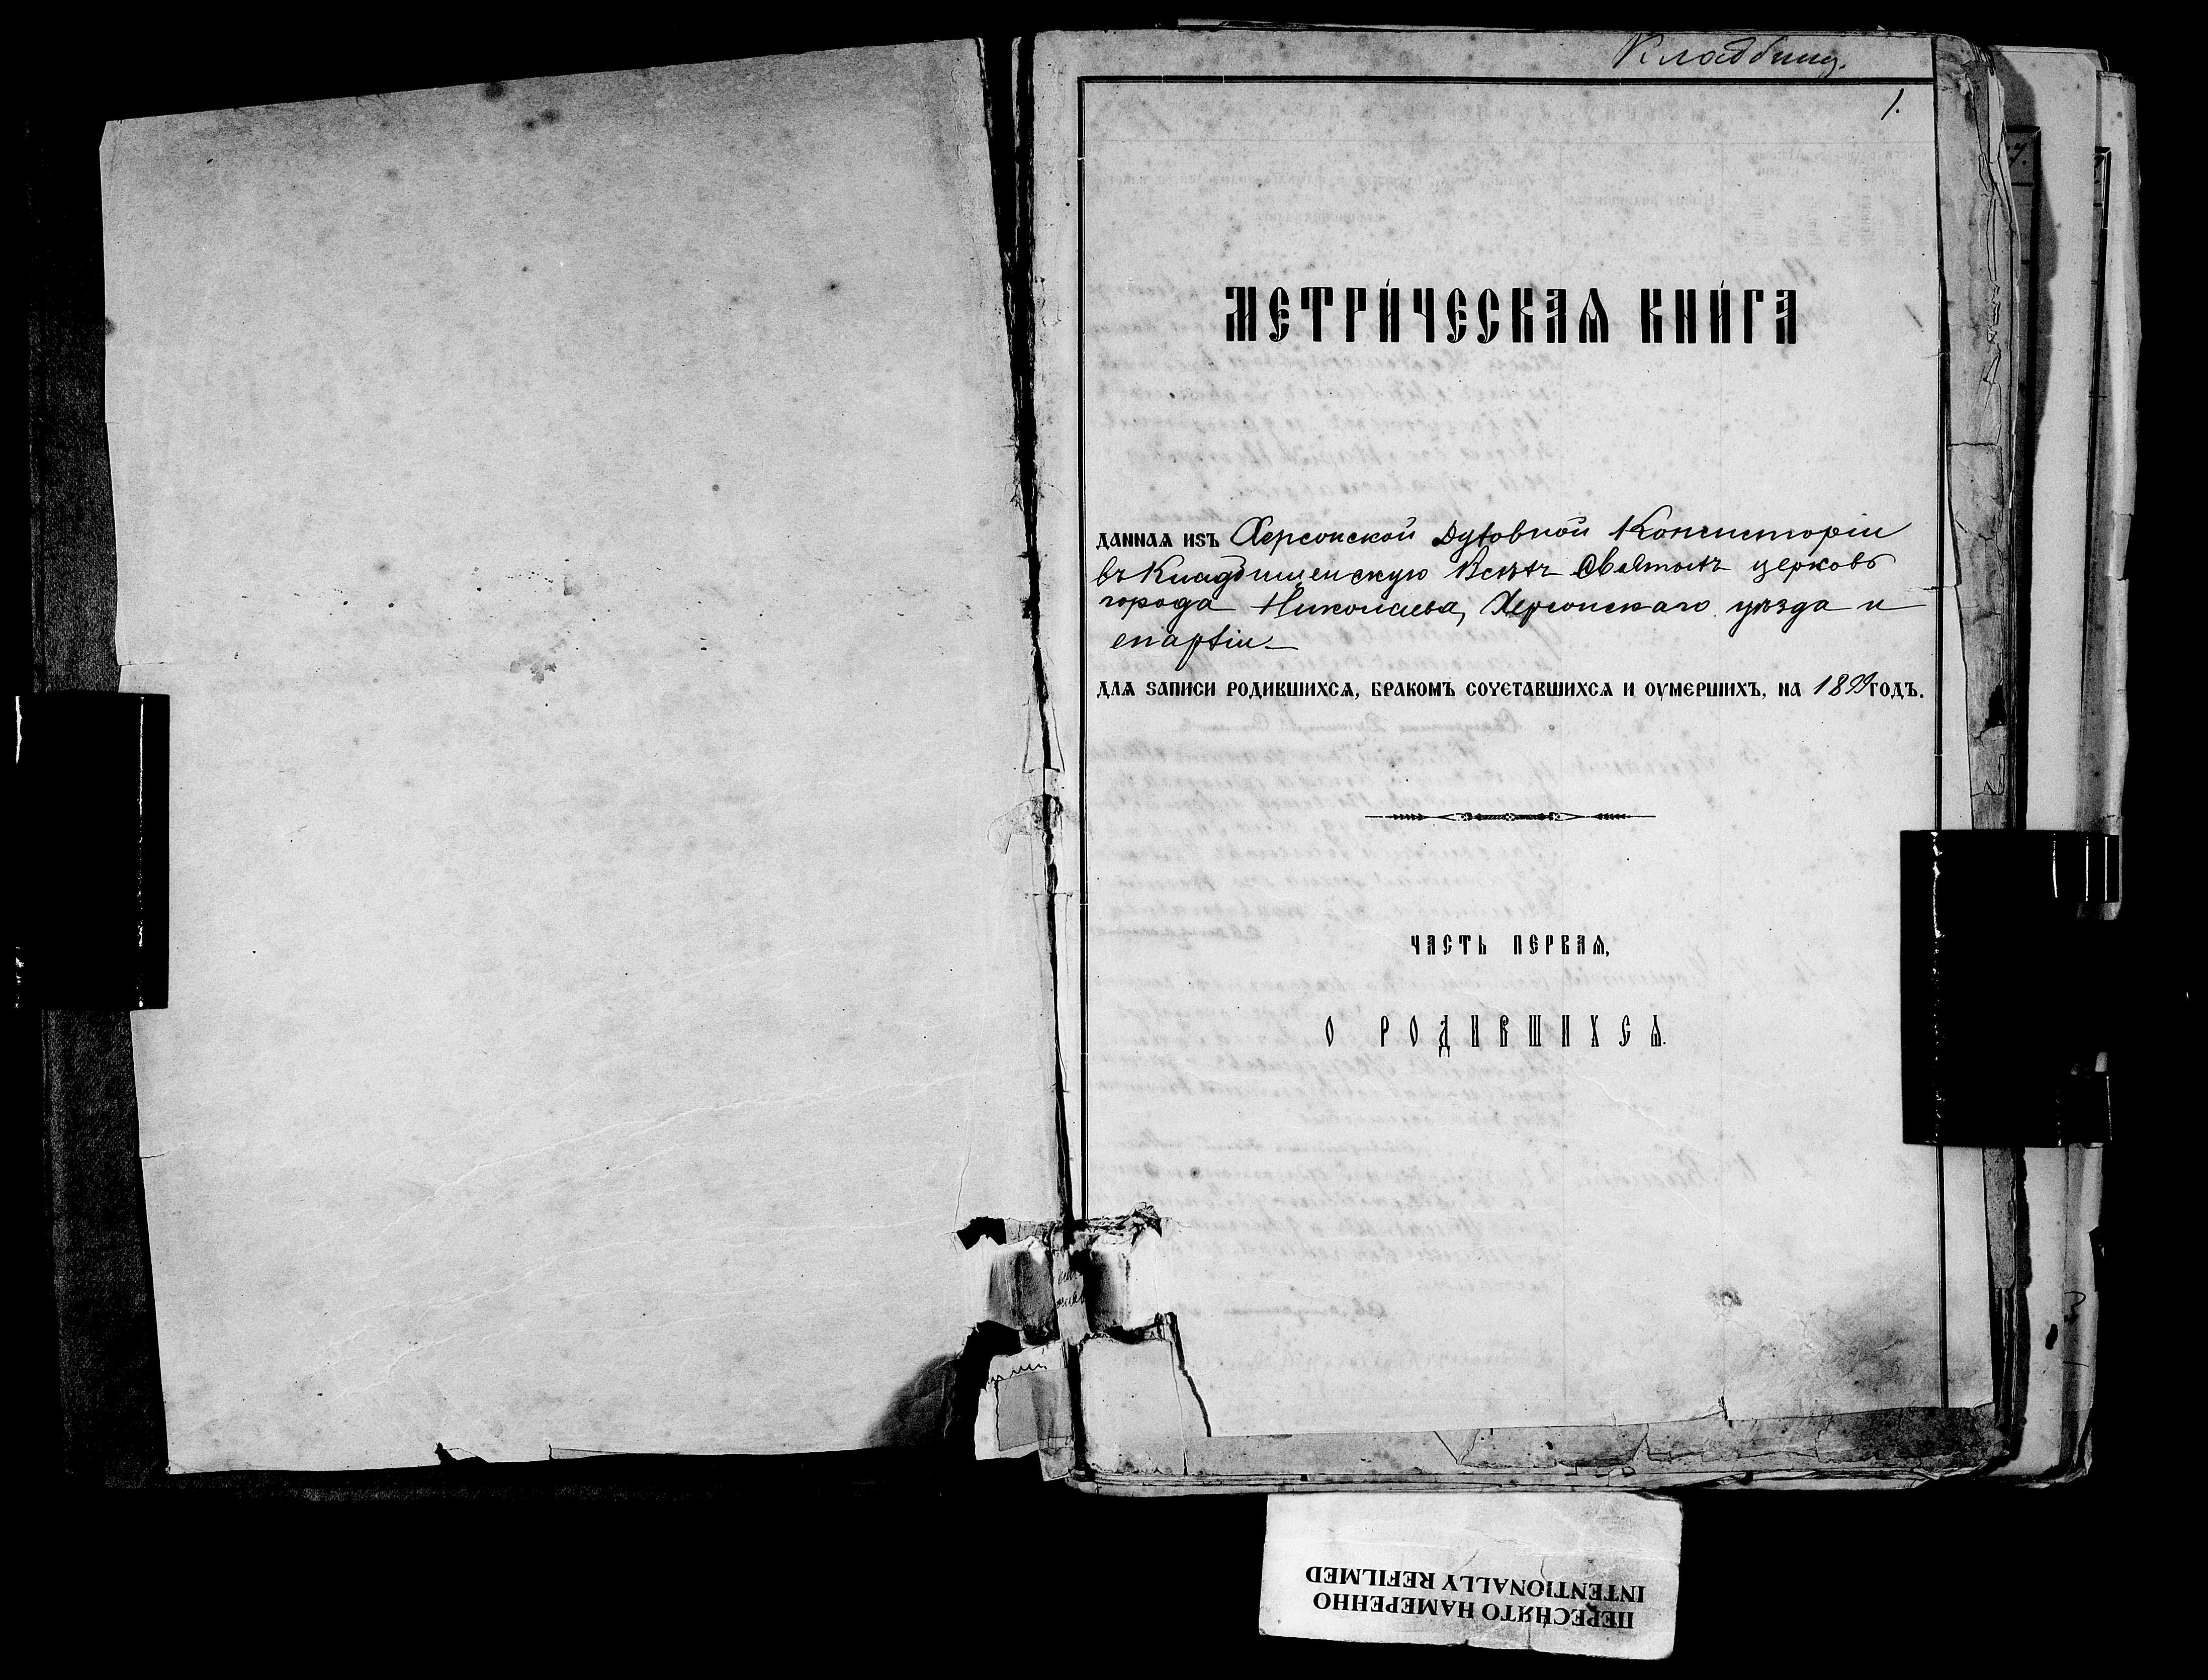 Кладбищ.
1.
МЕТРИ́ЧЕСКАѦ КНИ́ГА
ДАННАѦ ИЗЪ Херсонской Духовной Консисторіи
въ Кладбищенскую Всѣхъ Святыхъ церковь
города Николаева, Херсонскаго уѣзда и
епархіи
ДЛѦ ЗАПИСИ РОДИВШИХСѦ, БРАКОМЪ СОЧЕТАВШИХСѦ И ОУМЕРШИХЪ, НА 1899 ГОДЪ.
ЧАСТЬ ПЕРВАѦ,
О РОДИВШИХСѦ.
ПЕРЕСНЯТО НАМЕРЕННО
INTENTIONALLY REFILMED